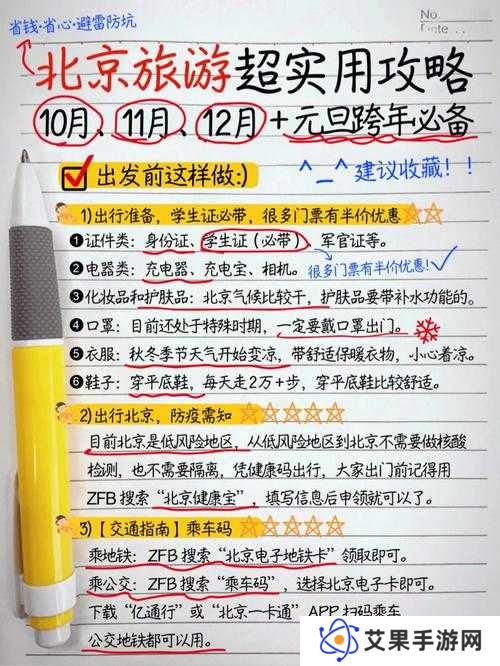 省钱·省心·避雷防坑
No.
Date...
北京旅游超实用攻略
10月、11月、12月+元旦跨年必备
出发前这样做:)
^_^ 建议收藏！！
1)出行准备，学生证必带，很多门票有半价优惠
❶证件类：身份证、学生证（必带）、军官证等。
❷电器类：充电器、充电宝、相机。
很多门票有半价优惠!
❸化妆品和护肤品：北京气候比较干，护肤品要带补水功能的。
❹口罩：目前还处于特殊时期，一定要戴口罩出门。
❺衣服：秋冬季节天气开始变凉，带舒适保暖衣物，小心着凉。
❻鞋子：穿平底鞋，每天走2万+步，穿平底鞋比较舒适。
2)出行北京，防疫需知
目前北京是低风险地区，从低风险地区到北京不需要做核酸
检测，也不需要隔离，凭健康码出行，大家出门前记得用
ZFB搜索“北京健康宝”，填写信息后申领就可以了。
3)【交通指南】乘车码
乘地铁：ZFB搜索“北京电子地铁卡”领取即可。
乘公交：ZFB搜索“乘车码”，选择北京电子卡即可。
下载“亿通行”或“北京一卡通”APP扫码乘车
公交地铁都可以用。
艾果手游网